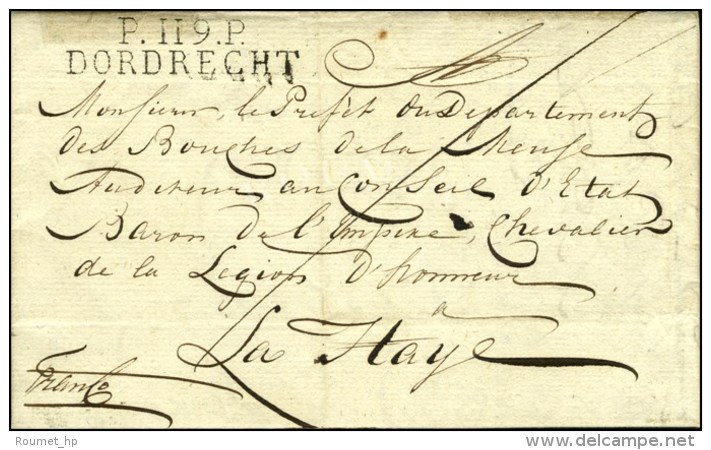 P.119.P.
DORDRECHT
Monsieur, le Préfet du Departement
des Bouches de la Meuse
Auditeur au Conseil d'Etat
Baron de l'Empire, Chevalier
de la Legion d'honneur
a
La Haÿe
Franco
Roumet_hp
©delcampe.net